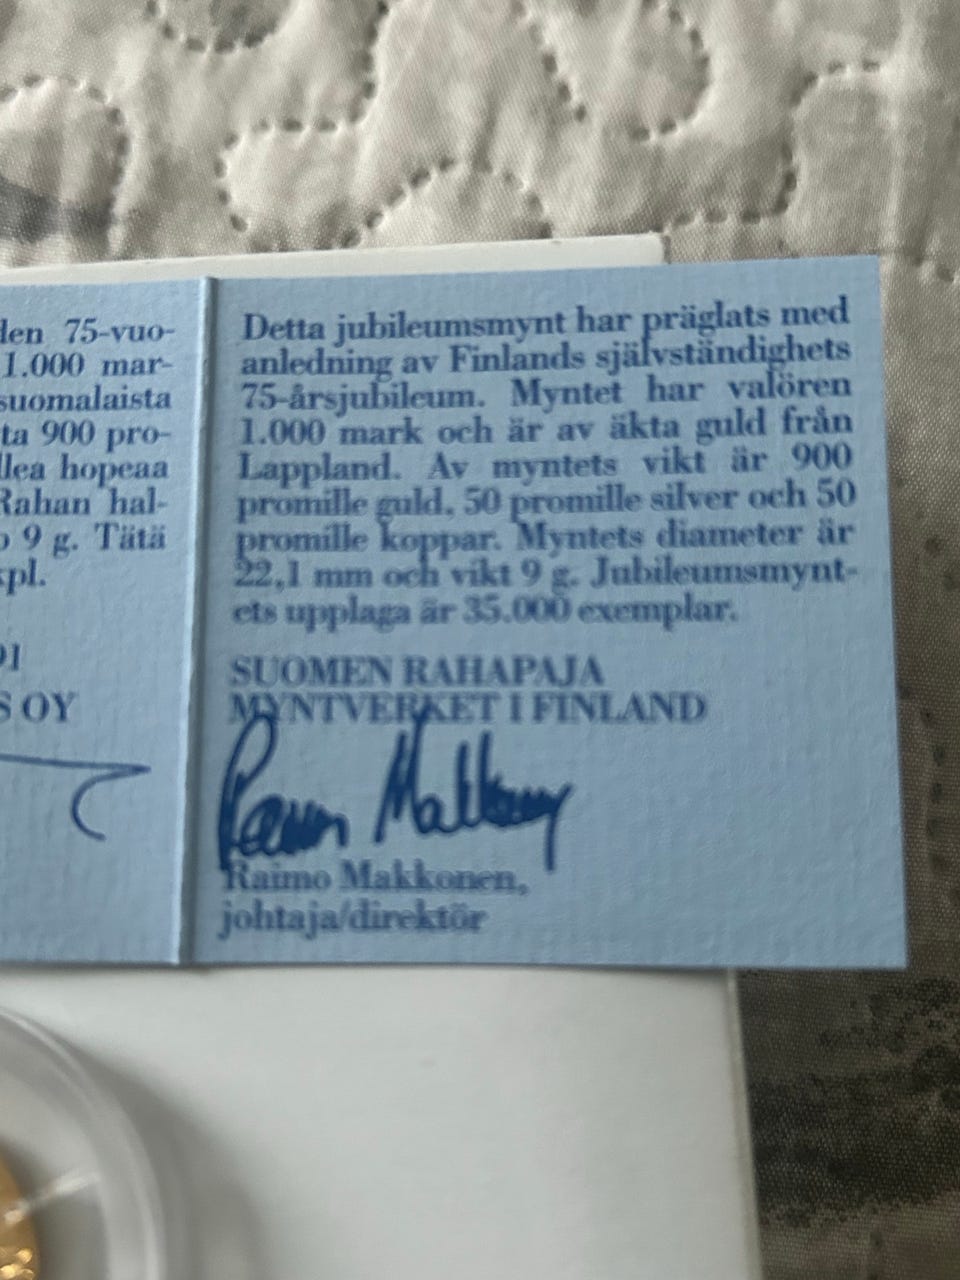 len 75-vuo-
1.000 mar-
suomalaista
ta 900 pro-
llea hopeaa
Rahan hal-
o 9 g. Tätä
kpl.
91
S OY
Detta jubileumsmynt har präglats med
anledning av Finlands självständighets
75-årsjubileum. Myntet har valören
1.000 mark och är av äkta guld från
Lappland. Av myntets vikt är 900
promille guld, 50 promille silver och 50
promille koppar. Myntets diameter är
22,1 mm och vikt 9 g. Jubileumsmynt-
ets upplaga är 35.000 exemplar.
SUOMEN RAHAPAJA
MYNTVERKET I FINLAND
Raimo Makkonen
Raimo Makkonen,
johtaja/direktör